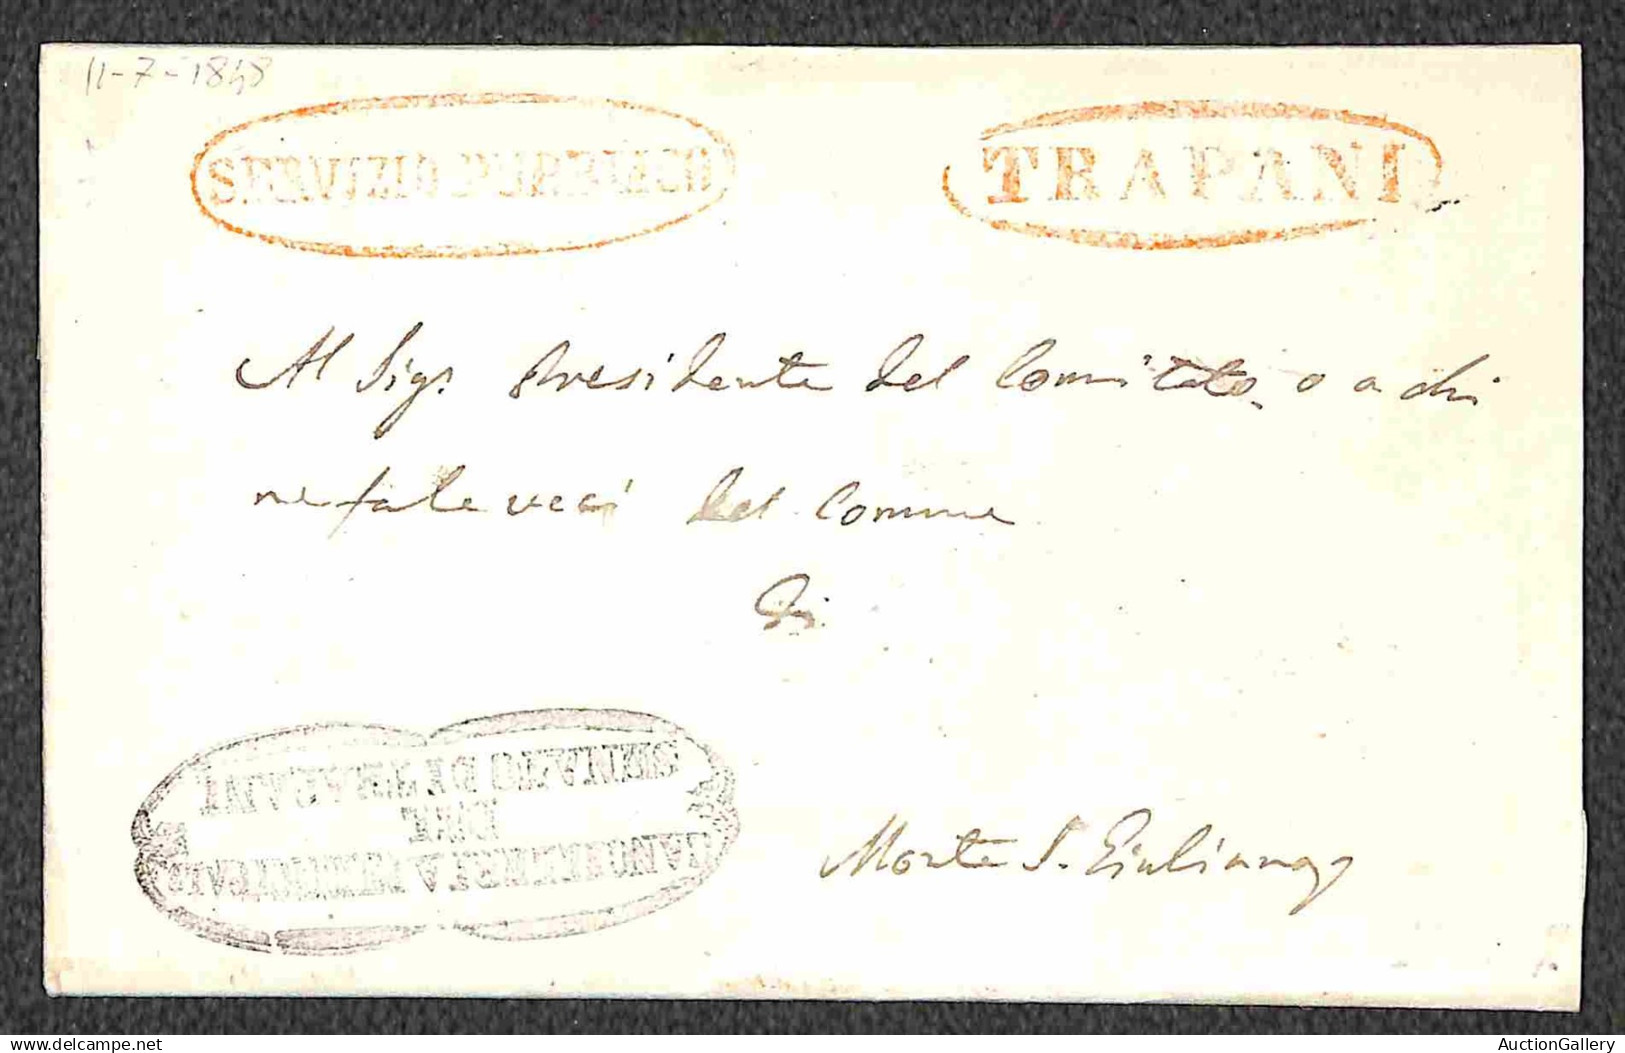 11-7-1848
SERVIZIO PUBBLICO
TRAPANI
Al Sig.r Presidente del Comitato, o a chi
ne fa le veci del Comune
Di
Monte S. Giuliano
DEL
www.delcampe.net
AuctionGallery